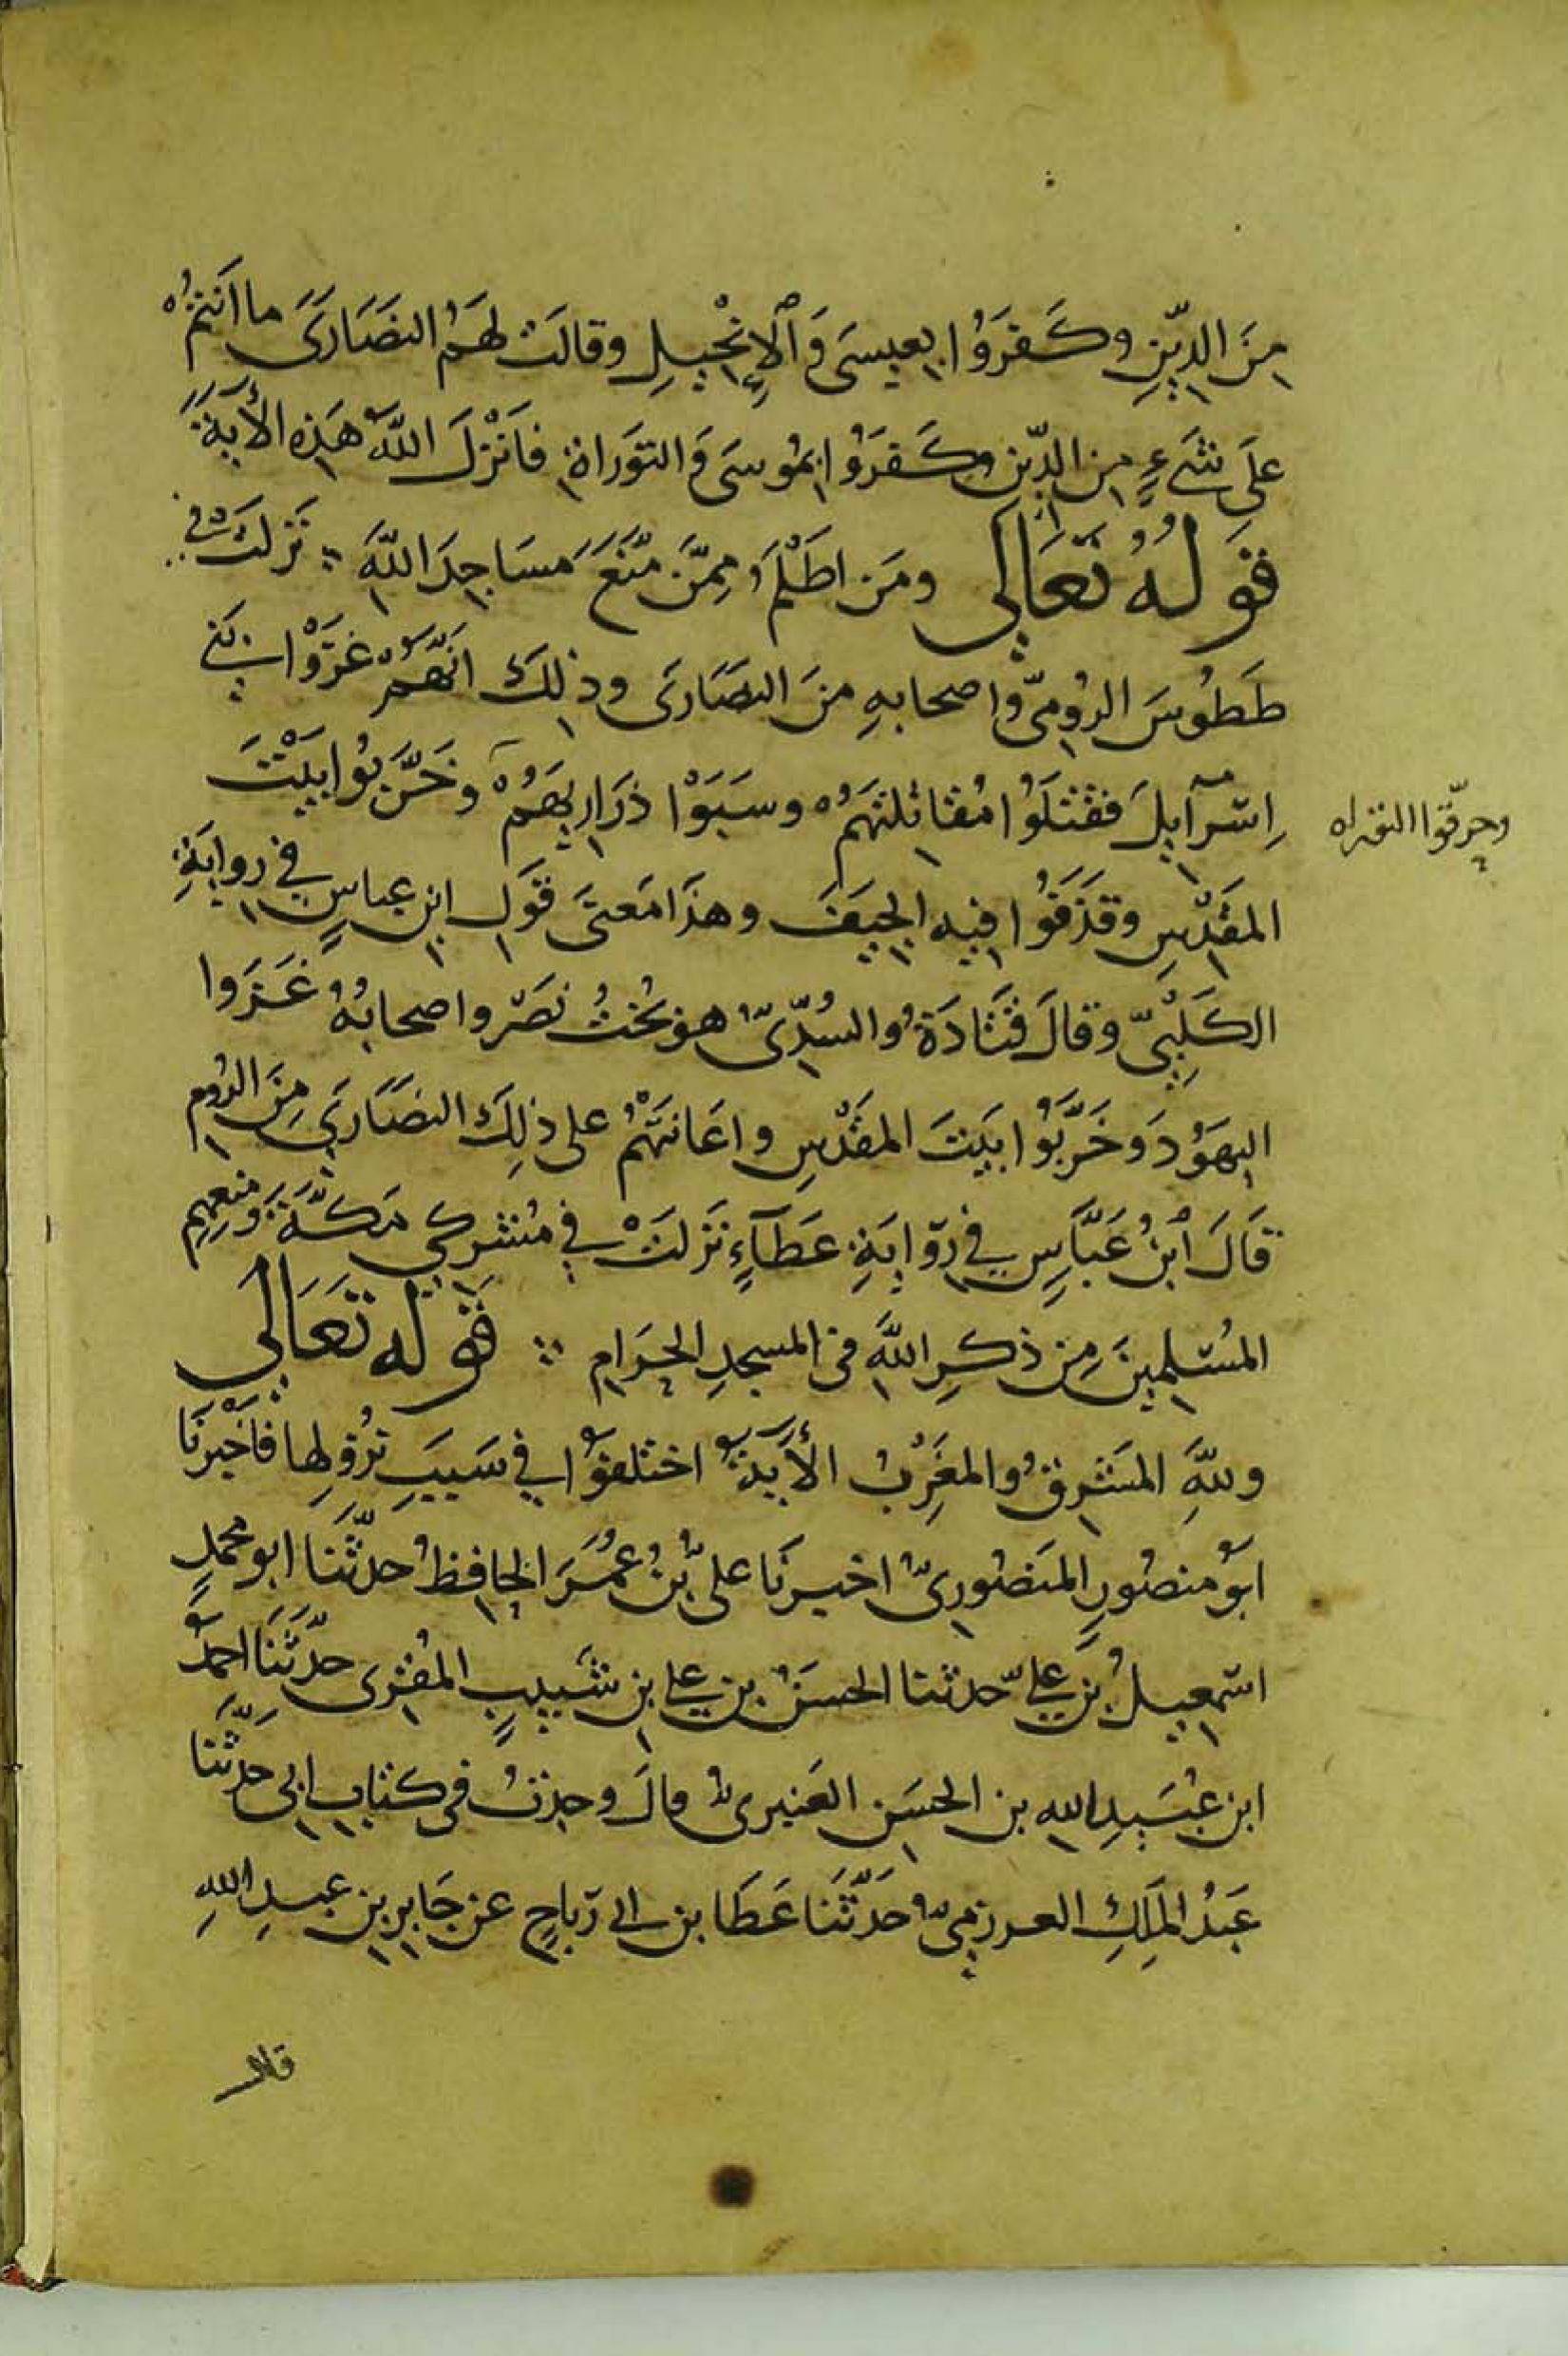 مِنَ الدِّيْنِ وكَفَرَوُا بِعِيسَى وَٱلْإِنْجِيلِ وقالَتْ لهَمُ النصَارَى ما اَنتمُ
علَى شَيءٍ مِن الدِّين وكَفَروُا بموُسىَ وَالتوَراة فاَنْزلَ اللهُ هَذِه الأيَةَ
قوَلُهُ تَعَالَى ومَن اظَلْمَُ مِمَّن مَّنَعَ مَسَاجِدَ اللهِ نَزَلَتْ في
طَطُوسَ الرُومِىِّ واصحابهِ منَ النصَارَى وذلِكَ انَّهُمْ غزَوْا بَني
اِسْرَآيِلَ فقَتَلوُا مُقاتِلتَهَمُْ وسَبَوْا ذرَارِيَهَمُْ وخَرَّبوُا بيَتْ
وحرّقوا التوراه
المَقْدِسِ وقذَفوُا فيِهِ الجِيَفَ وهذَا مَعنىَ قوَلِ ابنِ عباسٍ في روايَةِ
الكَلْبِيِّ وقالَ قتَادَةُ والسُدِّىُّ هو بُخْتُ نصَرّ واصحابُهُ غَزَوا
اليهَوُدَ وَخَرَّبوُا بَيتَ المقَدْسِ واعَانتَهْمُْ على ذلِكَ النصَارَي مِنَ الرُوم
قاَلَ اُبْنُ عَبَّاسٍ في رِوّايَةِ عَطَآءٍ نَزَلتَْ في مُشْركي مَكَّةَ ومنعِهِم
المُسْلِميِنَ مِن ذكرِ اللهِ في المسجدِ الحرَامِ قوَله تَعَالَى
وللهِ المَشْرِقُ والمغَرِبُ الأيَةُ اختلفوُا في سَببَِ نزُولِها فاَخْبرنَا
ابوُ منصُورٍ المَنصُورِىُّ اخبرنَا علىُّ بْنُ عمُرَ الحافِظُ حدثَّنَا ابو محمدٍ
اسْمعِيلُ بْنُ عليّ حدثنا الحسَنُ بن علي بن شَبيبٍ المقُرى حدَّثَنَا احمدُ
ابن عُبَيدِ الله بن الحسَن العَنبرىُّ قالَ وجدتُ في كتابِ ابى حدثَّنَا
عَبدُ المَلِكِ العرزمىُّ حَدَّثَنَا عَطَا بن ابى رَباحٍ عن جَابرِ بن عبدِ اللهِ
قال